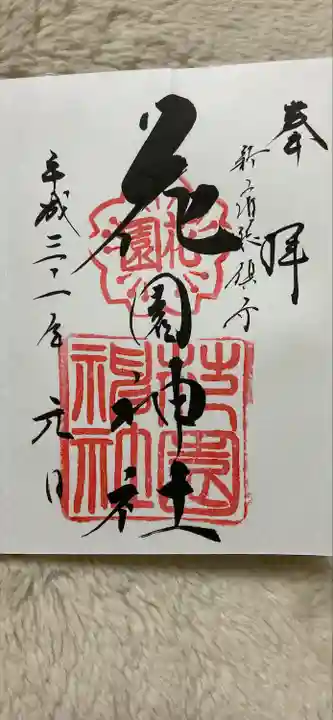 奉拝
新宿総鎮守
花園神社
花園
花園神社
平成三十一年 元日